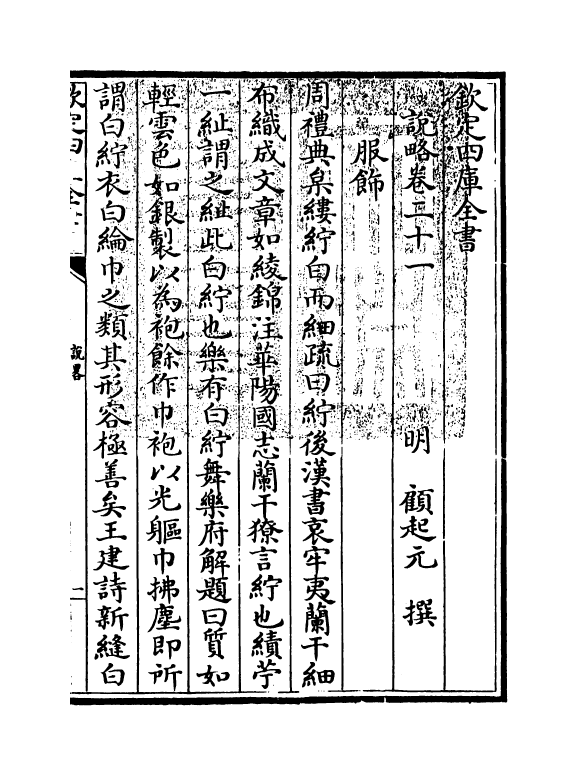 欽定四庫全書
說略卷二十一
明 顧起元 撰
服飾
周禮典枲縷紵白而細疏曰紵後漢書哀牢夷蘭干細
布織成文章如綾錦注華陽國志蘭干獠言紵也績苧
一紪謂之紪此白紵也樂有白紵舞樂府解題曰質如
輕雲色如銀製以為袍餘作巾袍以光軀巾拂塵即所
謂白紵衣白綸巾之類其形容極善矣王建詩新縫白
欽定四庫全書
說畧